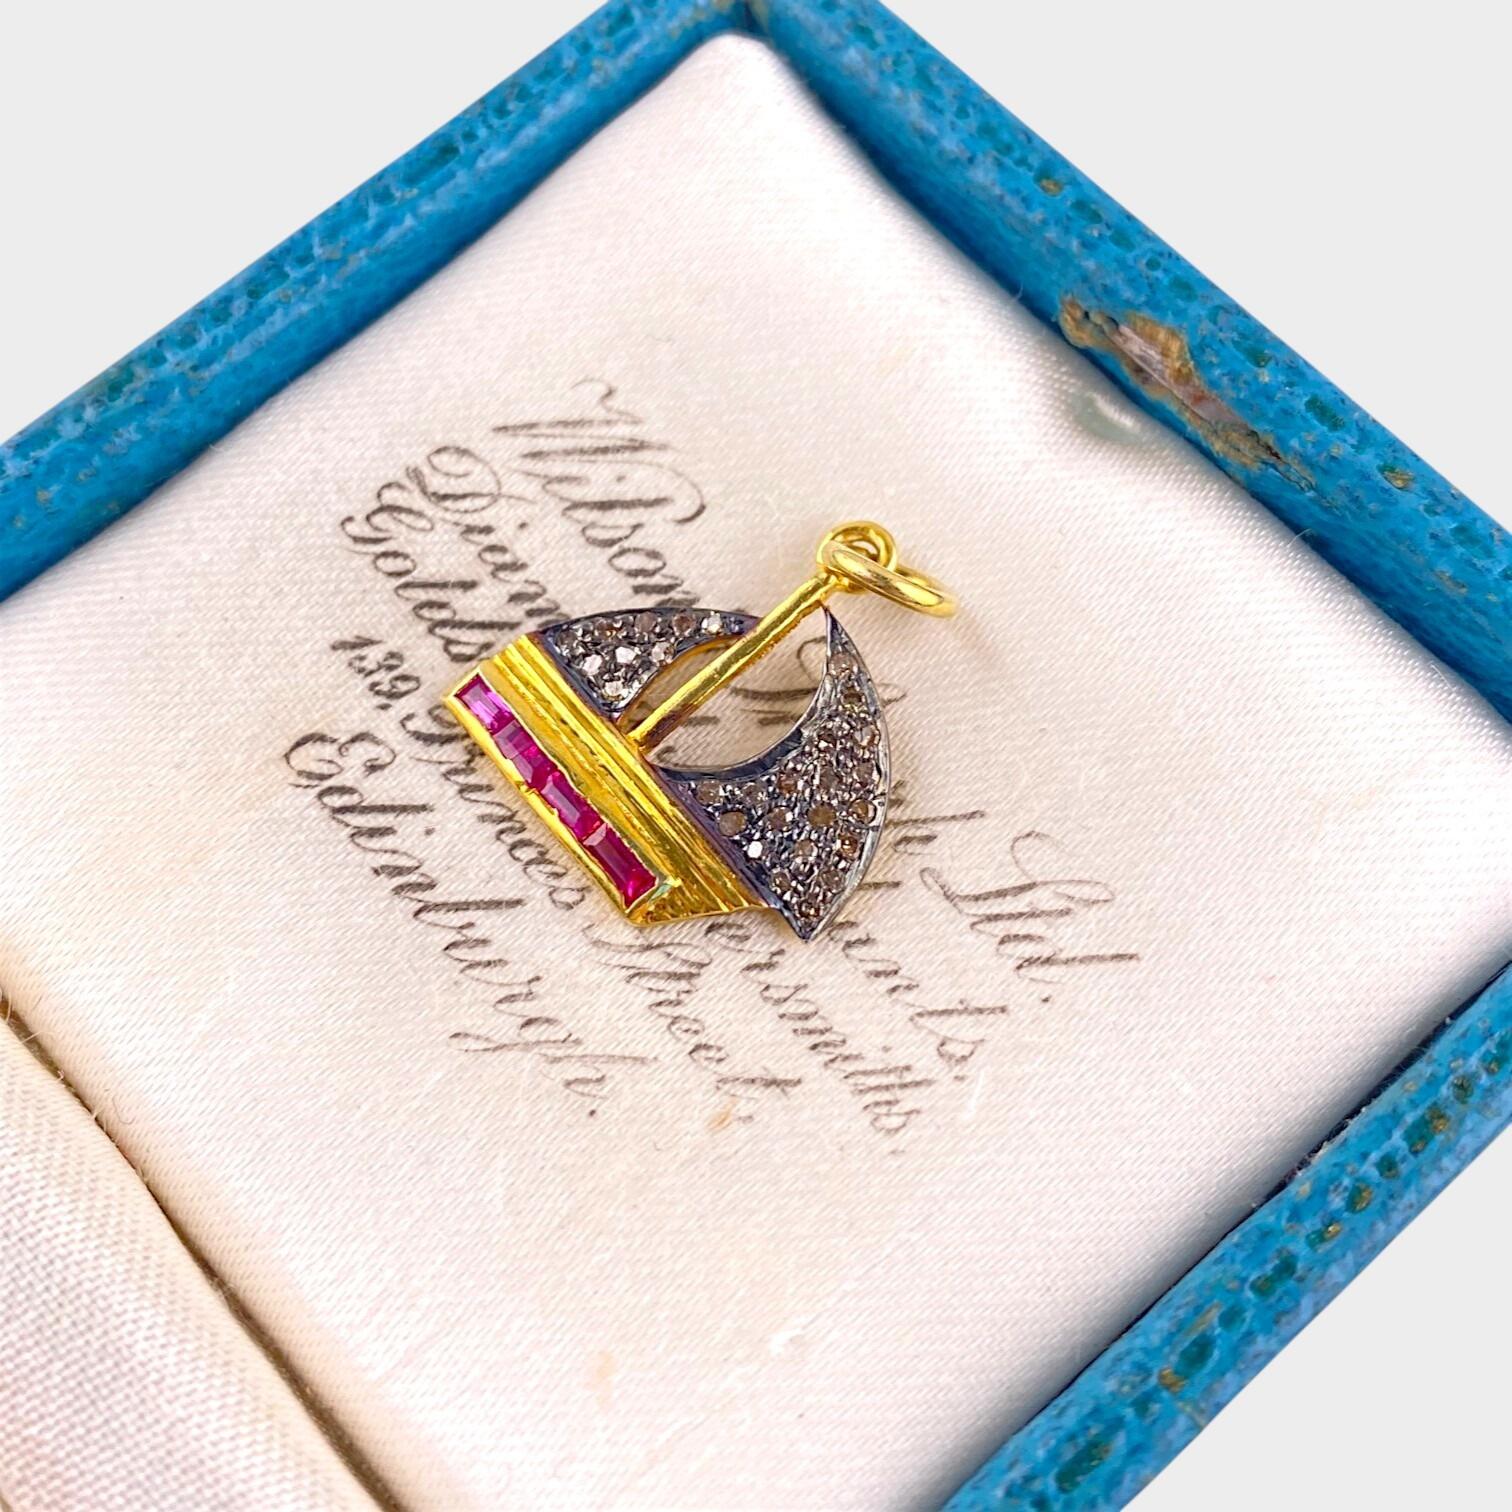 Wilson & Sharp Ltd.
Diamond Merchants,
Goldsmiths & Silversmiths
139, Princes Street,
Edinburgh.